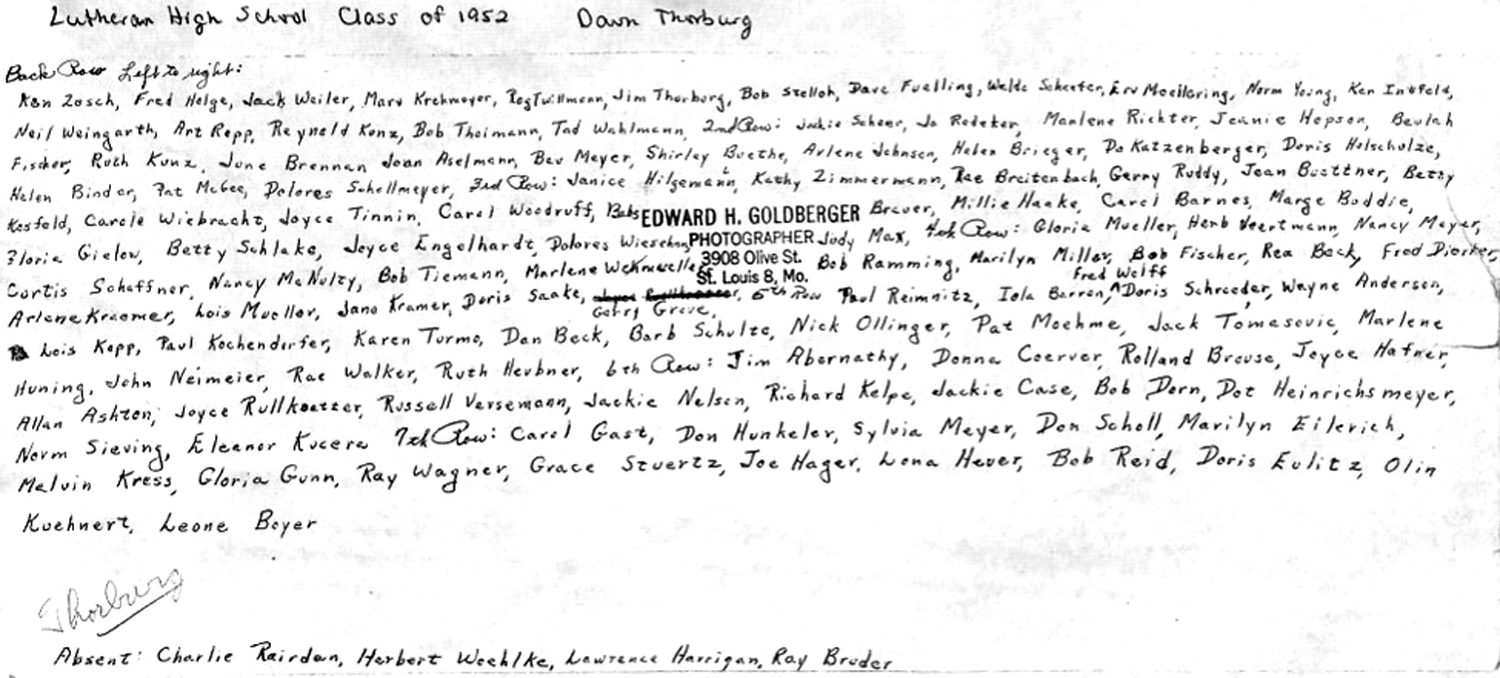 Lutheran High School Class of 1952 Dawn Thorburg
Back Row Left to right:
Ken Zosch, Fred Helge, Jack Weiler, Marv Krehmeyer, Rog Twillmann, Jim Thorburg, Bob Stelloh, Dave Fuelling, Welde Scheefer, Erv Moellering, Norm Young, Ken Intfeld,
Neil Weingarth, Art Repp, Reynold Kunz, Bob Thoimann, Tad Wahlmann, 2nd Row: Jackie Scheer, Jo Redeker, Marlene Richter, Jeanie Hopson, Beulah
Fischer, Ruth Kunz, June Brennan Joan Aselmann, Bev Meyer, Shirley Buethe, Arlene Johnson, Helen Brieger, Do Katzenberger, Doris Holschulze,
Helen Binder, Pat McGee, Dolores Schellmeyer, 3rd Row: Janice Hilgemann, Kathy Zimmermann, Rae Breitenbach, Gerry Ruddy, Jean Buettner, Betty
Kosfeld, Carole Wiebracht, Joyce Tinnin, Carol Woodruff, Babs EDWARD H. GOLDBERGER Brever, Millie Haake, Carol Barnes, Marge Buddie,
Gloria Gielow, Betty Schlake, Joyce Engelhardt, Dolores Wieschan PHOTOGRAPHER Judy Max, 4th Row: Gloria Mueller, Herb Veertmann, Nancy Meyer,
3908 Olive St.
Curtis Schaffner, Nancy McNulty, Bob Tiemann, Marlene Wehmueller St. Louis 8, Mo. Bob Ramming, Marilyn Miller, Bob Fischer, Rea Beck, Fred Dierker,
Fred Wolff
Arlene Kraemer, Lois Mueller, Jane Kramer, Doris Saake, 5th Row Paul Reimnitz, Iola Barron, ^ Doris Schroeder, Wayne Anderson,
Gerry Grove,
Lois Kopp, Paul Kochendorfer, Karen Turmo, Dan Beck, Barb Schulte, Nick Ollinger, Pat Moehme, Jack Tomasovic, Marlene
Huning, John Neimeier, Rae Walker, Ruth Heubner, 6th Row: Jim Abernathy, Donna Coerver, Rolland Brouse, Joyce Hafner,
Allan Ashton, Joyce Rullkoetter, Russell Versemann, Jackie Nelson, Richard Kelpe, Jackie Case, Bob Dorn, Dot Heinrichsmeyer,
Norm Sieving, Eleanor Kucera 7th Row: Carol Gast, Don Hunkeler, Sylvia Meyer, Don Scholl, Marilyn Eilerich,
Melvin Kress, Gloria Gunn, Ray Wagner, Grace Stuertz, Joe Hager, Lona Heuer, Bob Reid, Doris Eulitz, Olin
Kuehnert, Leone Boyer
Thorburg
Absent: Charlie Rairdan, Herbert Woehlke, Lawrence Harrigan, Ray Bruder